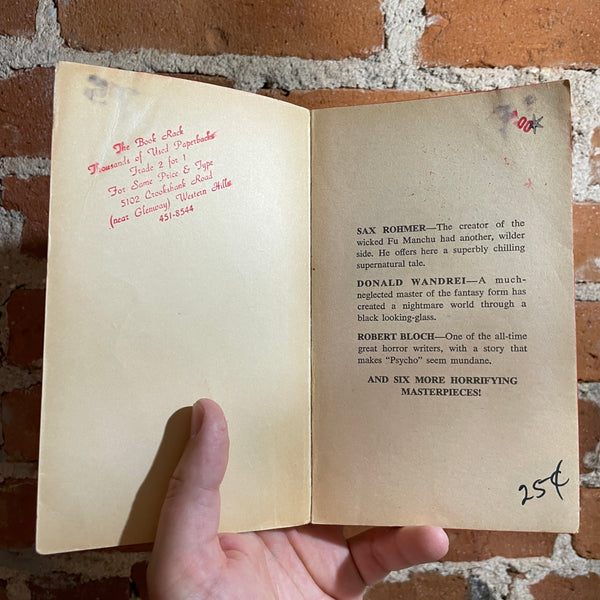 The Book Rack
Thousands of Used Paperbacks
Trade 2 for 1
For Same Price & Type
5102 Crookshank Road
(near Glenway) Western Hills
451-8544
SAX ROHMER—The creator of the
wicked Fu Manchu had another, wilder
side. He offers here a superbly chilling
supernatural tale.
DONALD WANDREI—A much-
neglected master of the fantasy form has
created a nightmare world through a
black looking-glass.
ROBERT BLOCH—One of the all-time
great horror writers, with a story that
makes "Psycho" seem mundane.
AND SIX MORE HORRIFYING
MASTERPIECES!
25¢